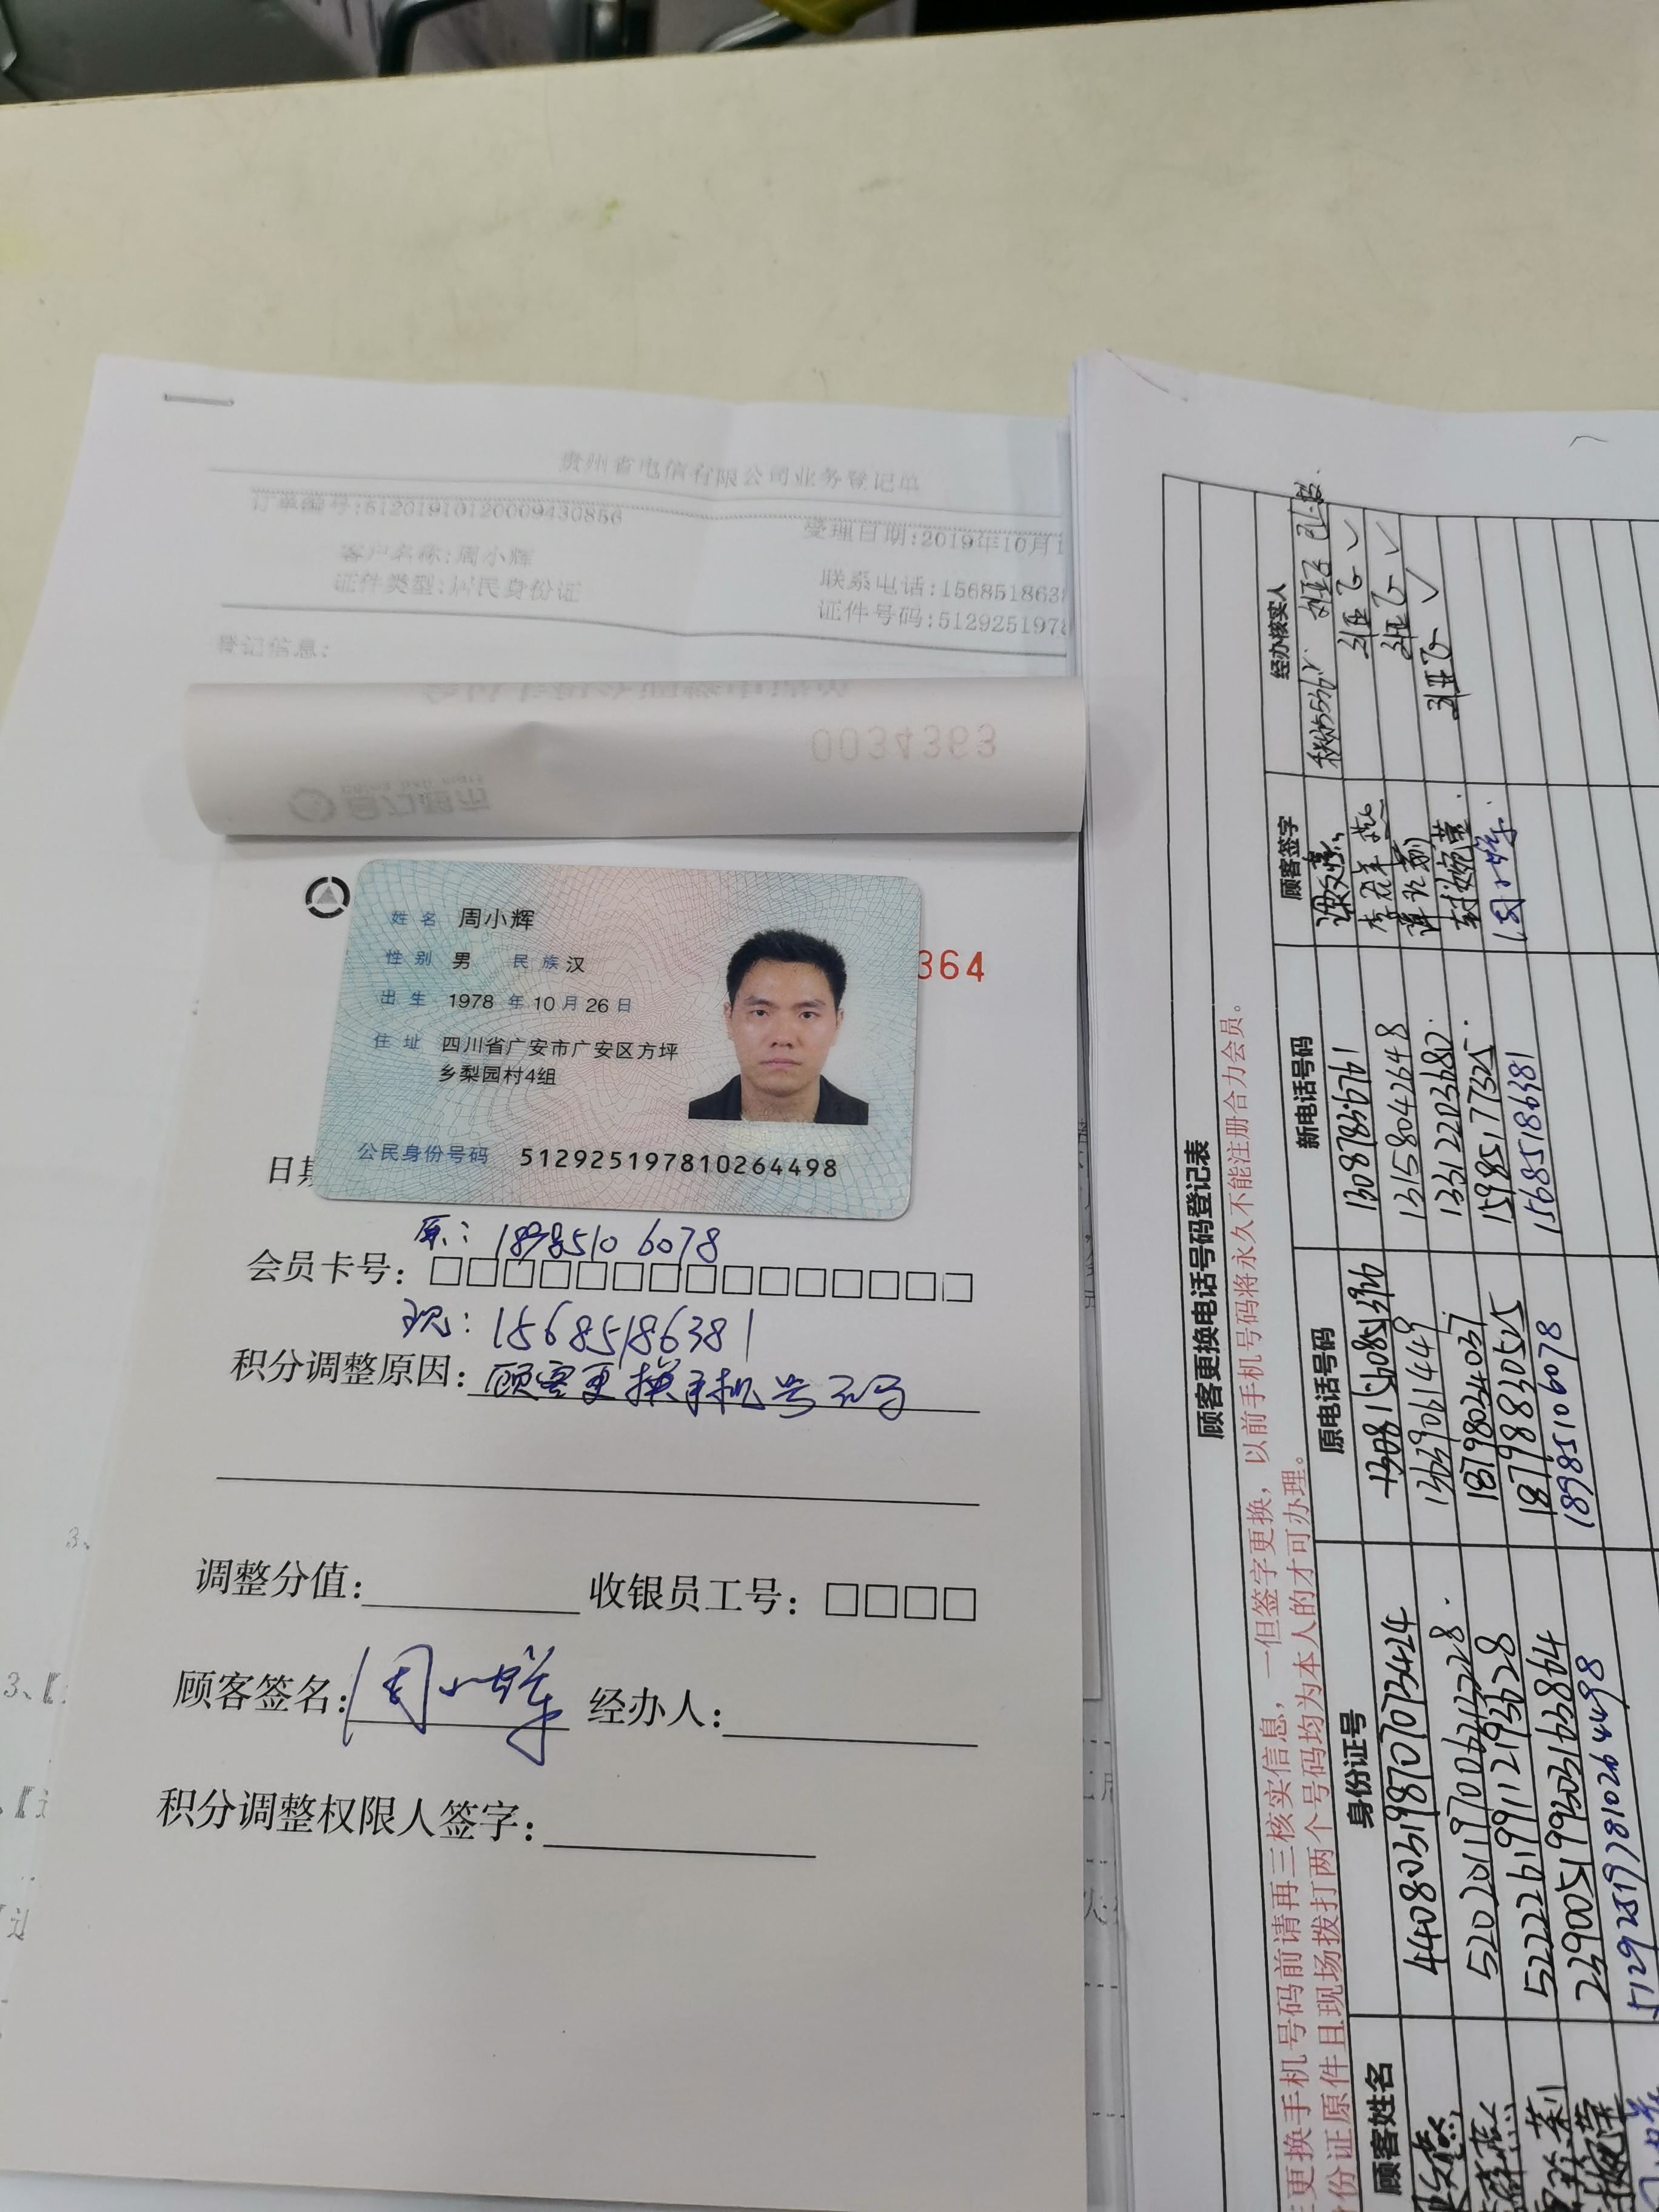 贵州省电信有限公司业务登记单
订单编号:51201910120009430856
受理日期:2019年10月1
客户名称:周小辉
联系电话:1568518638
证件类型:居民身份证
证件号码:5129251978
登记信息:
0034363
姓名 周小辉
性别 男 民族 汉
364
出生 1978 年 10 月 26 日
住址 四川省广安市广安区方坪
乡梨园村4组
公民身份号码 512925197810264498
日期
原: 18985106078
会员卡号:
现: 15685186381
积分调整原因: 顾客更换手机号码
调整分值: 收银员工号:
顾客签名: 周小辉 经办人:
积分调整权限人签字:
顾客更换电话号码登记表
更换手机号码前请再三核实信息，一但签字更换，以前手机号码将永久不能注册合力会员。
份证原件且现场拨打两个号码均为本人的才可办理。
顾客姓名 身份证号 原电话号码 新电话号码 顾客签字 经办核实人
13087836761
520201197006213228 13639061449 13158042648
18798034037
18798830525 15985177325
512925197810264498 18985106078 15685186381 周小辉